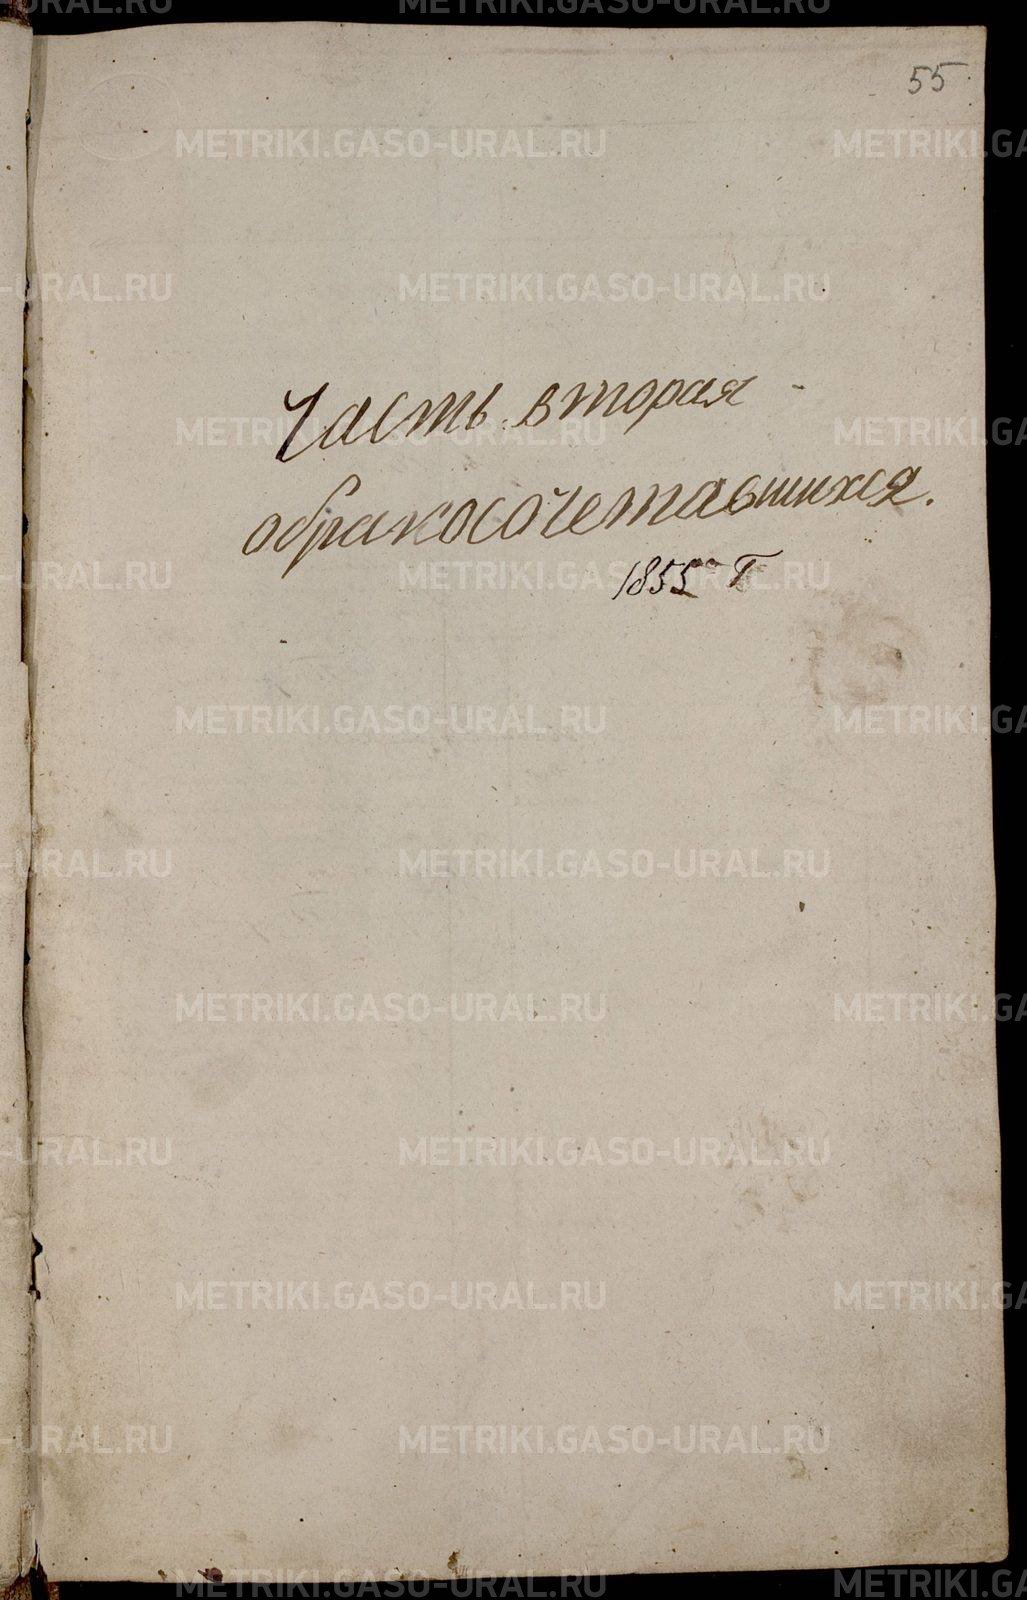 55
Часть вторая
обракосочетавшихся.
1855 Г
METRIKI.GASO-URAL.RU